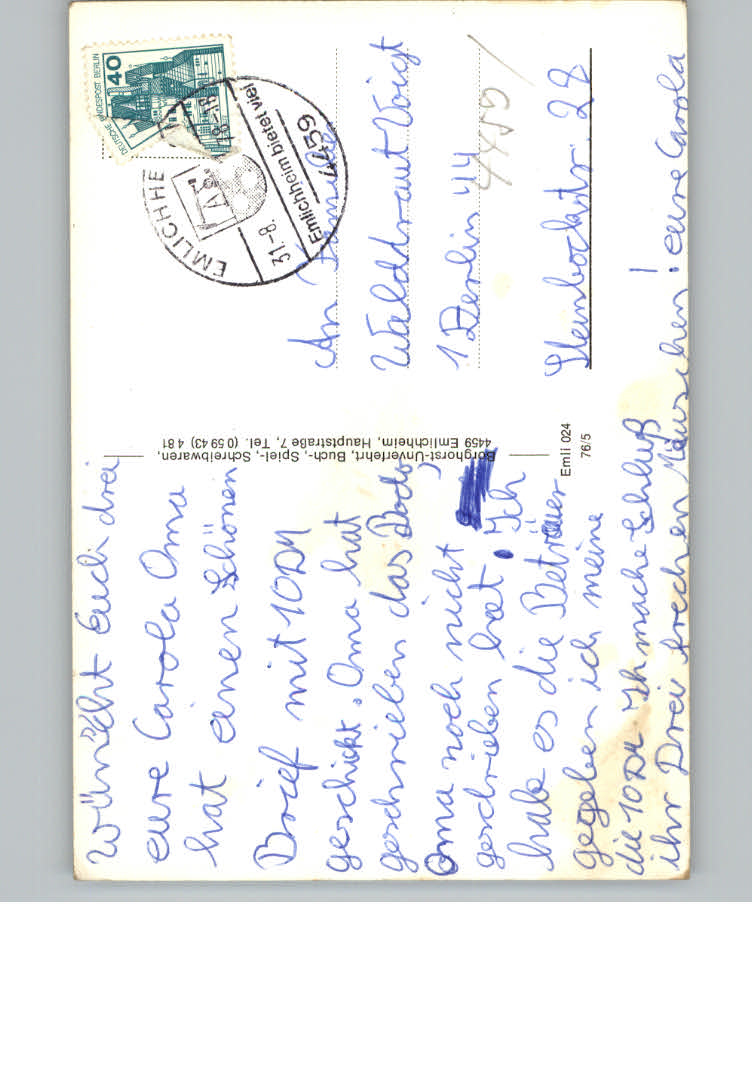 wünscht Euch drei
eure Carola Oma
hat einen schönen
Brief mit 10DM
geschickt. Oma hat
geschrieben das Bodo
Oma noch nicht
geschrieben hat. Ich
habe es die Betreuer
gegeben ich meine
die 10DM Ich mache Schluß
ihr Drei frechen Mäuschen! eure Carola
Borghorst-Unverfehrt, Buch-, Spiel-, Schreibwaren,
4459 Emlichheim, Hauptstraße 7, Tel. (0 59 43) 4 81
Emli 024
76/5
DEUTSCHE BUNDESPOST BERLIN
40
EMLICHHE
31.-8.
Emlichheim bietet viel
4459
An Familie
Walddraut Voigt
1 Berlin 44
4450
Steinbockstr. 28